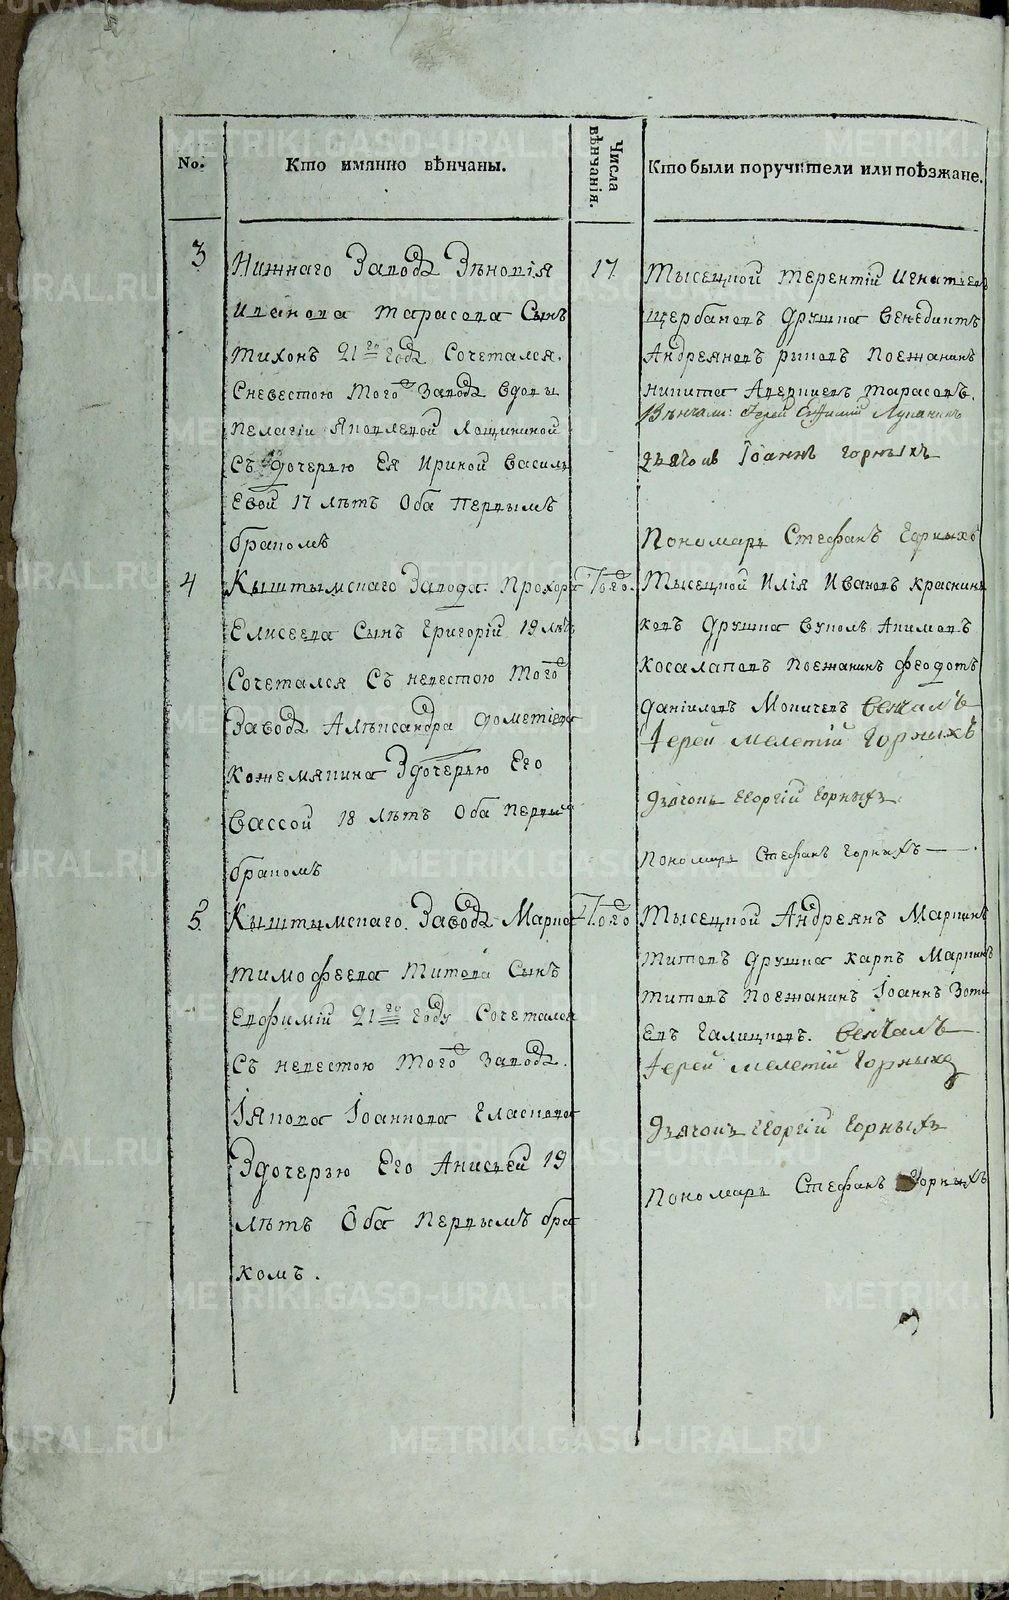 No.
Кто имянно вѣнчаны.
Числа вѣнчанія.
Кто были поручители или поѣзжане.
3
Нижнаго Завода Зѣновія
Иванова Тарасова Сынъ
Тихонъ 21го году Сочетался
Сневестою Того Завода вдовы
Пелагіи Яковлевой Лощининой
Съ дочерью Ея Ириной Василь
евой 17 лѣтъ Оба Первымъ
бракомъ
17
Тысецкой Терентій Игнатьевъ
Щербаковъ Дружка Венедиктъ
Андреяновъ Рыковъ Поежанинъ
Никита Аверкиевъ Тарасовъ.
Вѣнчали: Іерей Лупанинъ
дьячокъ Іоаннъ Горныхъ
Пономарь Стефанъ Горныхъ
4
Кыштымскаго Завода. Прохора
Елисеева Сынъ Григорій 19 лѣтъ
Сочетался Съ невестою Того
Завода Алѣксандра Дометіева
Кожемякина Здочерью Его
Вассой 18 лѣтъ Оба первымъ
бракомъ
Того.
Тысецкой Илія Ивановъ Краснини
ковъ Дружка Вуколъ Акимовъ
Косалаповъ Поежанинъ Феодотъ
Даніиловъ Мокичевъ Венчалъ
Іерей Мелетій Горныхъ
Дьячокъ Георгій Горныхъ
Пономарь Стефанъ Горныхъ
5.
Кыштымскаго. Завода Марка
Тимофеева Титова Сынъ
Евфимій 21го году Сочетался
Съ невестою Того Завода.
Іякова Іоаннова Гласкова
Здочерью Его Анисьей 19
лѣтъ Оба Первымъ бра
комъ.
Того
Тысецкой Андреянъ Маркинъ
Титовъ Дружка Карпъ Маркинъ
Титовъ Поежанинъ Іоаннъ Зоти
евъ Галицковъ. Венчалъ
Іерей Мелетій Горныхъ
Дьячокъ Георгій Горныхъ
Пономарь Стефанъ Горныхъ
METRIKI.GASO-URAL.RU